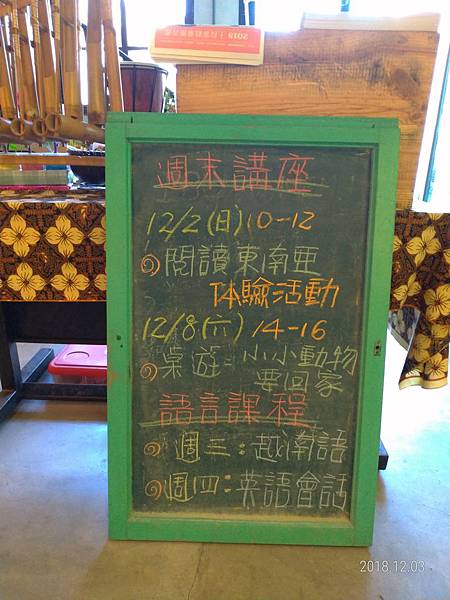 週末講座
12/2(日)10-12
閱讀東南亞
体驗活動
12/8(六) 14-16
桌遊:小小動物
要回家
語言課程
週三:越南語
週四:英語會話
2018.12.03